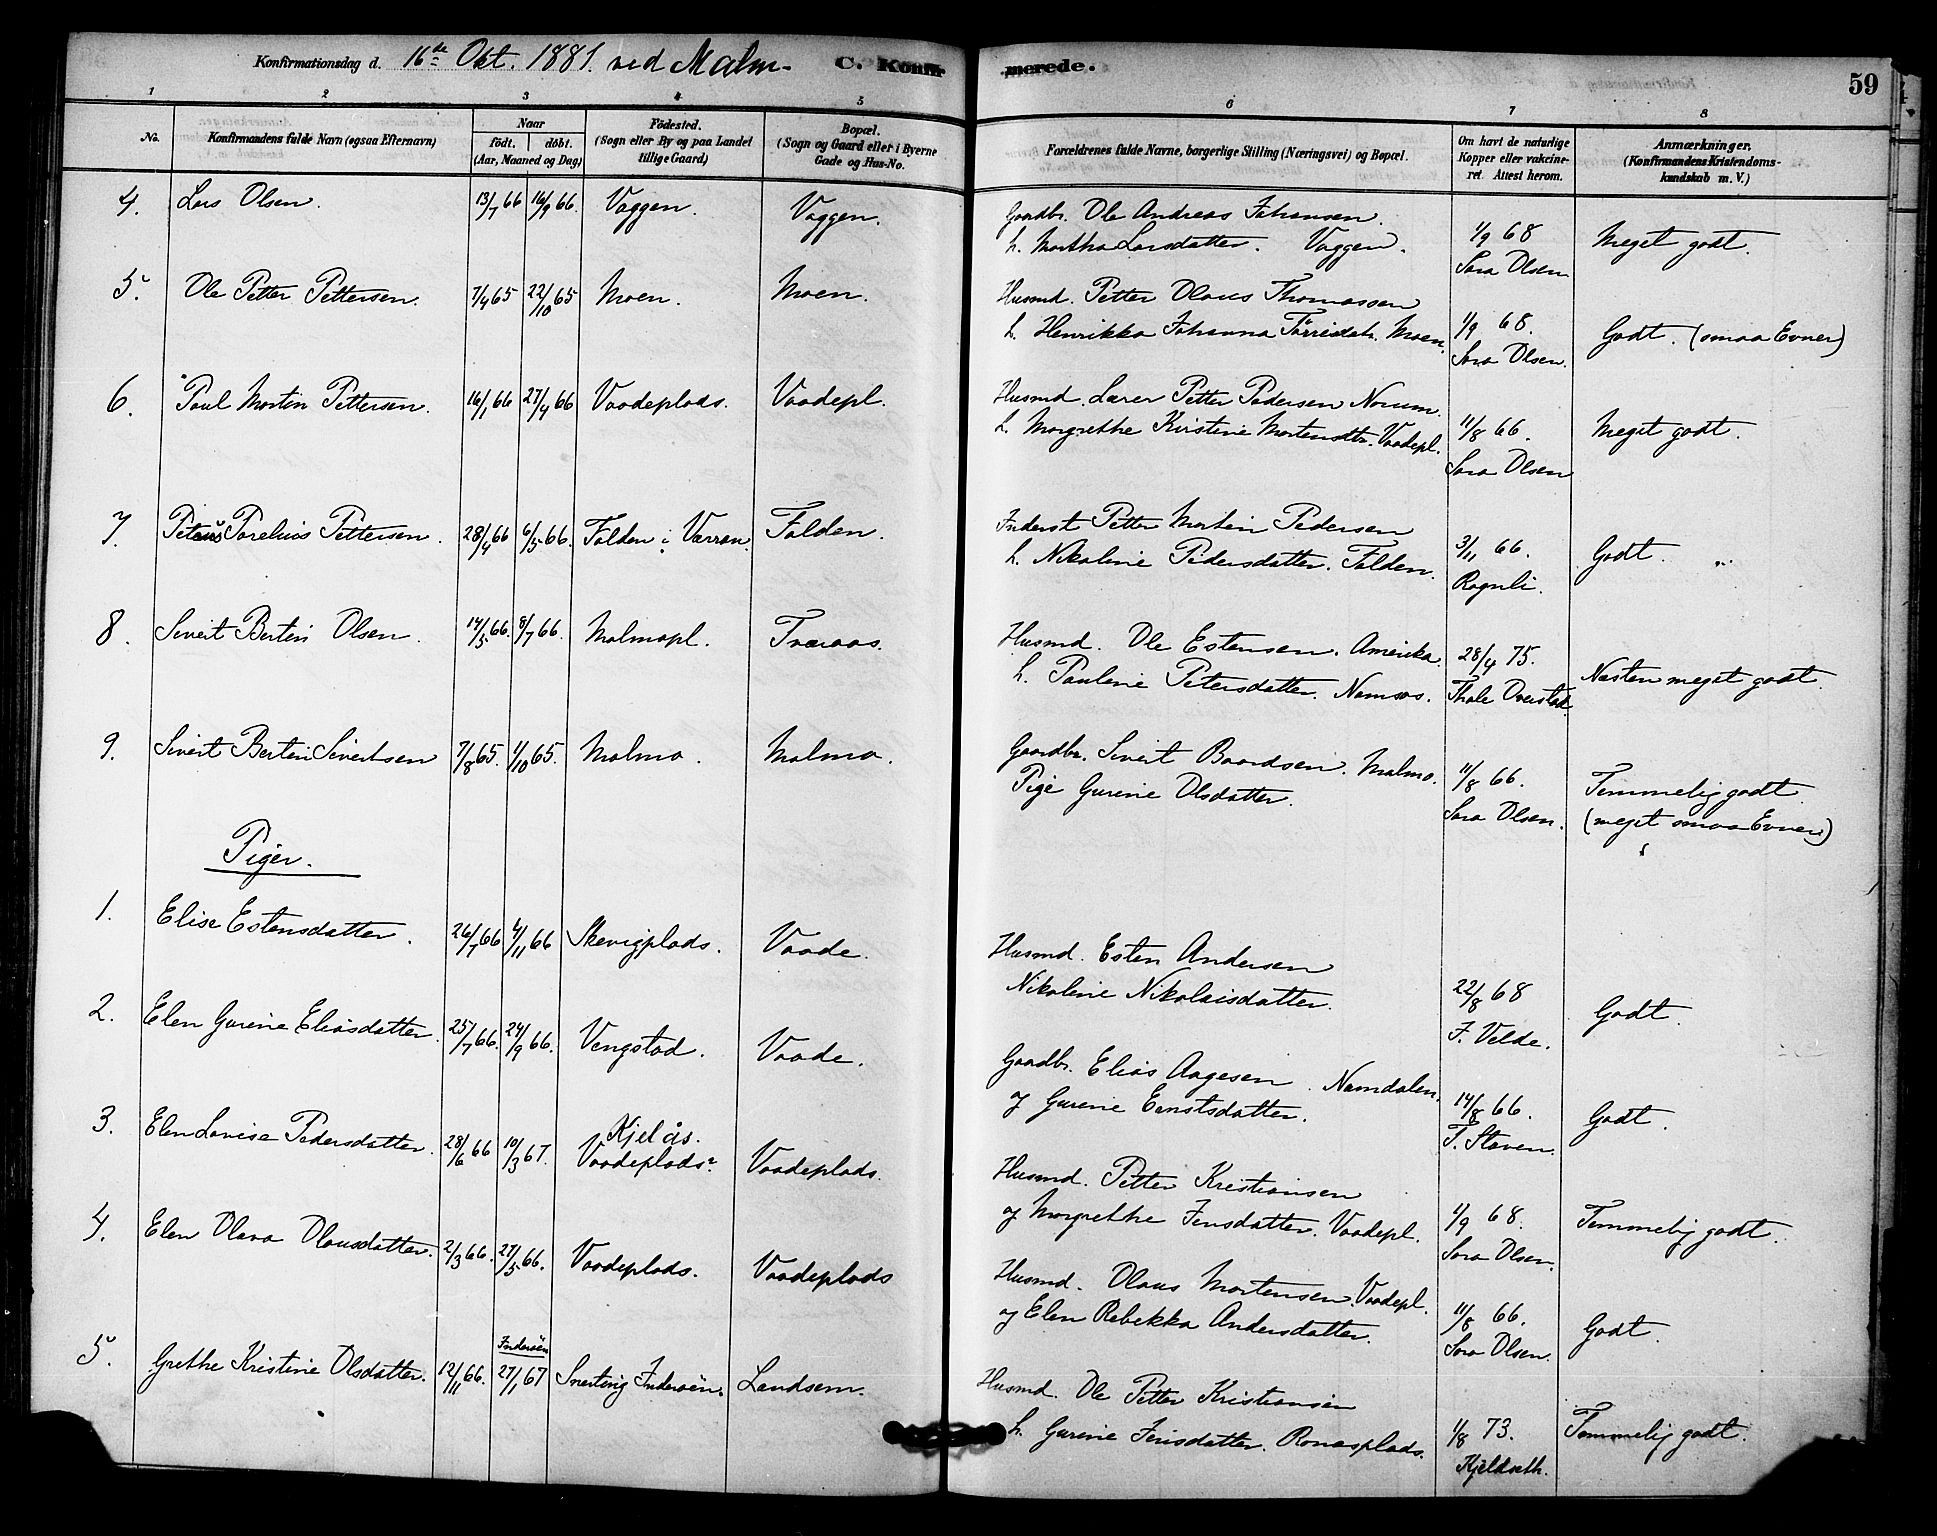 Konfirmationsdag d. 16de Okt. 1881. ved Malm.
C. Konfirmerede.
59
1 2 3 4 5 6 7 8
No.
Konfirmandens fulde Navn (ogsaa Efternavn)
Naar
født. døbt.
(Aar, Maaned og Dag)
Fødested.
(Sogn eller By og paa Landet
tillige Gaard)
Bopæl.
(Sogn og Gaard eller i Byerne
Gade og Hus-No.
Forældrenes fulde Navne, borgerlige Stilling (Næringsvei) og Bopæl.
Om havt de naturlige
Kopper eller vakcine-
ret. Attest herom.
Anmærkninger.
(Konfirmandens Kristendoms-
kundskab m. V.)
4. Lars Olsen. 13/7 66 16/9 66. Vaggen. Vaggen. Gaardbr. Ole Andreas Johansen. 1/9 68 Meget godt.
h. Martha Larsdatter. Vaggen. Sara Olsen
5. Ole Petter Pettersen. 7/4 65 22/10 65 Moen. Moen. Husmd. Petter Olaus Thomassen 1/9 68. Godt. (smaa Evner)
h. Henrikka Johanna Törrisdatr. Moen. Sara Olsen.
6. Paul Martin Pettersen. 16/1 66 27/4 66 Vaadeplads. Vaadepl. Husmd. Lærer Petter Pedersen Norum. 11/8 66. Meget godt.
h. Margrethe Kristine Mortensdtr. Vaadepl. Sara Olsen
7. Petrus Parelius Pettersen. 28/4 66 6/5 66. Folden i Værran. Folden. Inderst Petter Martin Pedersen 3/11 66. Godt.
h. Nikoline Pedersdatter. Folden. Ragnli.
8. Sivert Bertin Olsen. 14/5 66. 8/7 66. Malmopl. Træraas. Husmd. Ole Estensen. Amerika. 28/4 75. Næsten meget godt.
h. Pauline Petersdatter. Namsos. Thale Overstad.
9. Sivert Bertin Sivertsen 7/8 65. 1/10 65. Malmo. Malmo. Gaardbr. Sivert Baardsen. Malmo. 11/8 66. Temmelig godt.
Pige Gurine Olsdatter. Sara Olsen. (meget smaa Evner)
Piger.
1. Elise Estensdatter. 26/7 66 4/11 66 Skevigplads. Vaade. Husmd. Esten Andersen 22/8 68 Godt.
Nikoline Nikolaisdatter. J. Velde.
2. Elen Gurine Eliasdatter. 25/7 66. 24/9 66. Vengstad. Vaade. Gaardbr. Elias Aagesen. Namdalen. 14/8 66. Godt.
og Gurine Ernstsdatter. T. Staven.
3. Elen Lovise Pedersdatter. 28/6 66 10/3 67. Kjelås. Vaadeplads? Vaadeplads. Husmd. Petter Kristiansen 1/9 68. Temmelig godt.
og Margrethe Jensdatter. Vaadepl. Sara Olsen.
4. Elen Olava Olausdatter. 2/3 66. 27/5 66. Vaadeplads. Vaadeplads Husmd. Olaus Mortensen. Vaadepl. 11/8 66. Godt.
og Elen Rebekka Andersdatter. Sara Olsen.
5. Grethe Kristine Olsdatter. 12/11 66. Inderøen 27/1 67 Snerting Inderøen. Landsem. Husmd. Ole Petter Kristiansen 1/8 73. Temmelig godt.
h. Gurine Jensdatter. Ronæsplads. Kjeldseth.